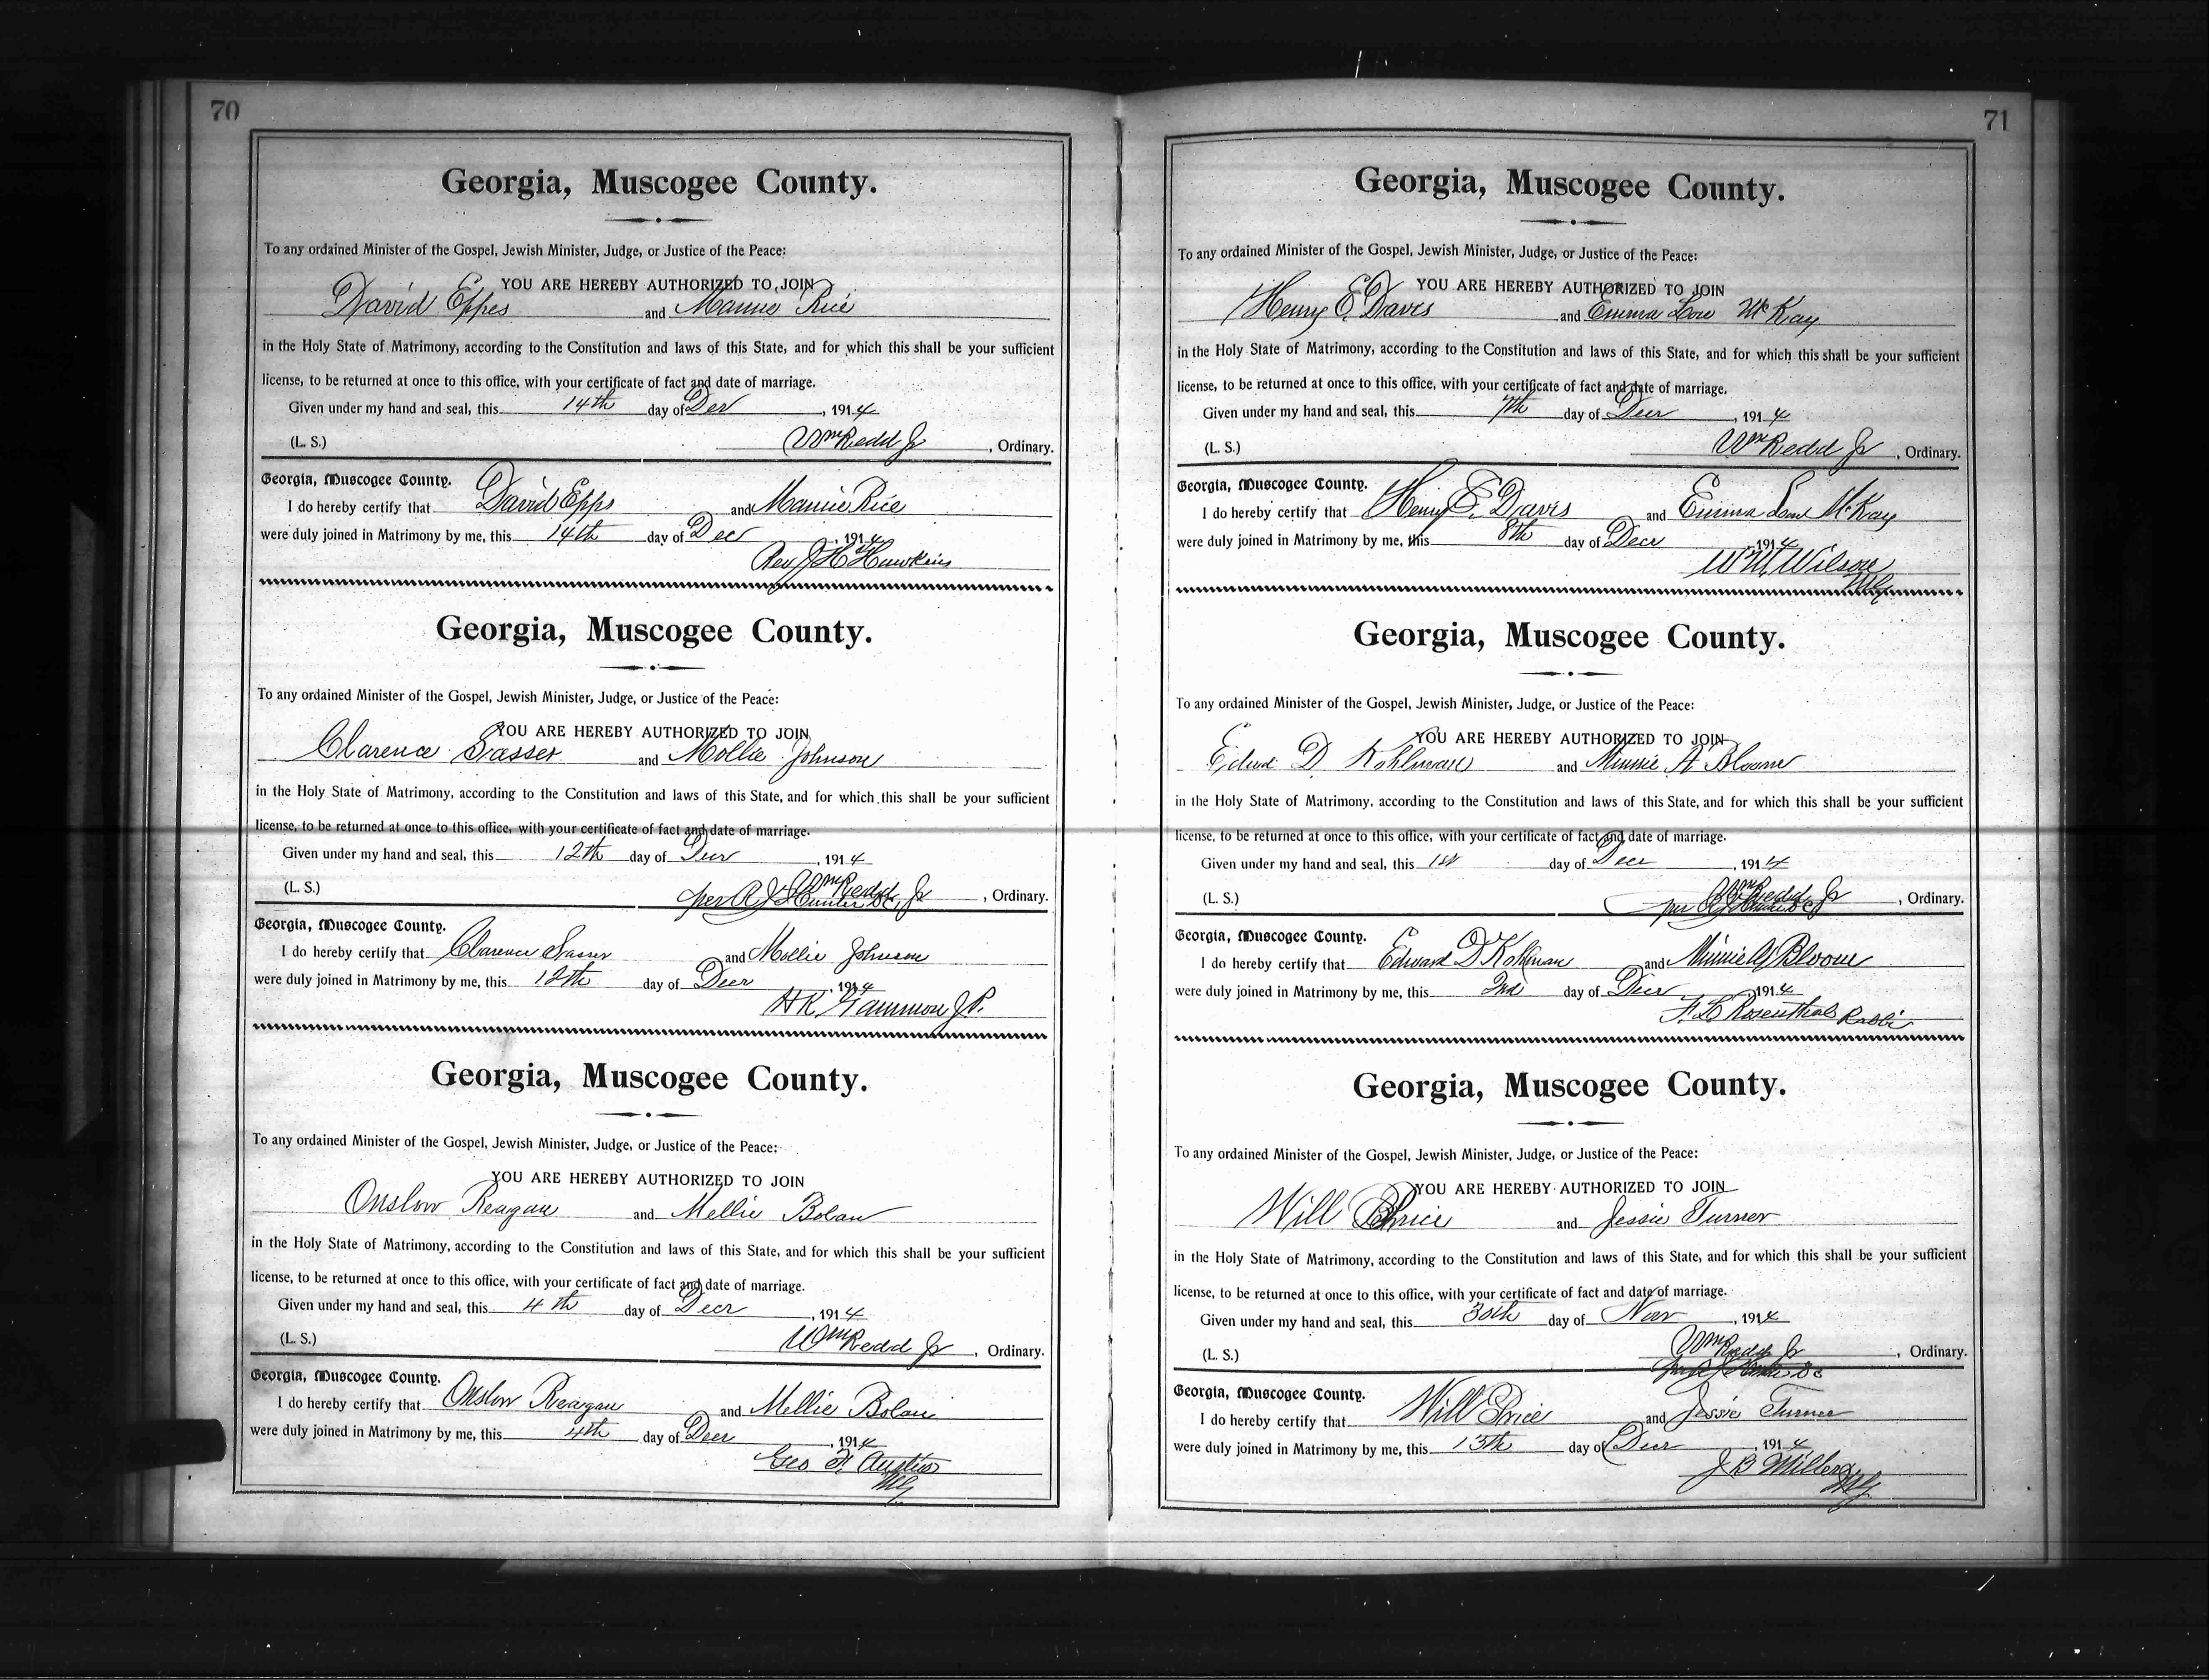 70
Georgia, Muscogee County.
To any ordained Minister of the Gospel, Jewish Minister, Judge, or Justice of the Peace:
YOU ARE HEREBY AUTHORIZED TO JOIN
David Eppes and Mamie Rice
in the Holy State of Matrimony, according to the Constitution and laws of this State, and for which this shall be your sufficient
license, to be returned at once to this office, with your certificate of fact and date of marriage.
Given under my hand and seal, this 14th day of Dec, 1914
(L. S.) Wm Redd Jr, Ordinary.
Georgia, Muscogee County.
I do hereby certify that David Epps and Mamie Rice
were duly joined in Matrimony by me, this 14th day of Dec, 1914
Rev J H Hawkins
Georgia, Muscogee County.
To any ordained Minister of the Gospel, Jewish Minister, Judge, or Justice of the Peace:
YOU ARE HEREBY AUTHORIZED TO JOIN
Clarence Sasser and Mollie Johnson
in the Holy State of Matrimony, according to the Constitution and laws of this State, and for which this shall be your sufficient
license, to be returned at once to this office, with your certificate of fact and date of marriage.
Given under my hand and seal, this 12th day of Decr, 1914
(L. S.) Wm Redd Jr, Ordinary.
per R J Hunter D C,
Georgia, Muscogee County.
I do hereby certify that Clarence Sasser and Mollie Johnson
were duly joined in Matrimony by me, this 12th day of Decr, 1914
H R Gammon J P.
Georgia, Muscogee County.
To any ordained Minister of the Gospel, Jewish Minister, Judge, or Justice of the Peace:
YOU ARE HEREBY AUTHORIZED TO JOIN
Onslow Reagan and Mellie Bolan
in the Holy State of Matrimony, according to the Constitution and laws of this State, and for which this shall be your sufficient
license, to be returned at once to this office, with your certificate of fact and date of marriage.
Given under my hand and seal, this 4th day of Decr, 1914
(L. S.) Wm Redd Jr, Ordinary.
Georgia, Muscogee County.
I do hereby certify that Onslow Reagan and Mellie Bolan
were duly joined in Matrimony by me, this 4th day of Decr, 1914
Geo F. Austin
MG
71
Georgia, Muscogee County.
To any ordained Minister of the Gospel, Jewish Minister, Judge, or Justice of the Peace:
YOU ARE HEREBY AUTHORIZED TO JOIN
Henry E. Davis and Emma Lou McKay
in the Holy State of Matrimony, according to the Constitution and laws of this State, and for which this shall be your sufficient
license, to be returned at once to this office, with your certificate of fact and date of marriage.
Given under my hand and seal, this 7th day of Decr, 1914
(L. S.) Wm Redd Jr, Ordinary.
Georgia, Muscogee County.
I do hereby certify that Henry E. Davis and Emma Lou McKay
were duly joined in Matrimony by me, this 8th day of Decr, 1914
W M Wilson
MG
Georgia, Muscogee County.
To any ordained Minister of the Gospel, Jewish Minister, Judge, or Justice of the Peace:
YOU ARE HEREBY AUTHORIZED TO JOIN
Edwd D Kohlman and Minnie A Bloom
in the Holy State of Matrimony, according to the Constitution and laws of this State, and for which this shall be your sufficient
license, to be returned at once to this office, with your certificate of fact and date of marriage.
Given under my hand and seal, this 1st day of Decr, 1914
(L. S.) Wm Redd Jr, Ordinary.
per R J Hunter D C
Georgia, Muscogee County.
I do hereby certify that Edward D Kohlman and Minnie A Bloom
were duly joined in Matrimony by me, this 2nd day of Decr, 1914
F. L. Rosenthal Rabbi
Georgia, Muscogee County.
To any ordained Minister of the Gospel, Jewish Minister, Judge, or Justice of the Peace:
YOU ARE HEREBY AUTHORIZED TO JOIN
Will Price and Jessie Turner
in the Holy State of Matrimony, according to the Constitution and laws of this State, and for which this shall be your sufficient
license, to be returned at once to this office, with your certificate of fact and date of marriage.
Given under my hand and seal, this 30th day of Nov, 1914
(L. S.) Wm Redd Jr, Ordinary.
per R J Hunter D C
Georgia, Muscogee County.
I do hereby certify that Will Price and Jessie Turner
were duly joined in Matrimony by me, this 13th day of Decr, 1914
J B Miller
MG